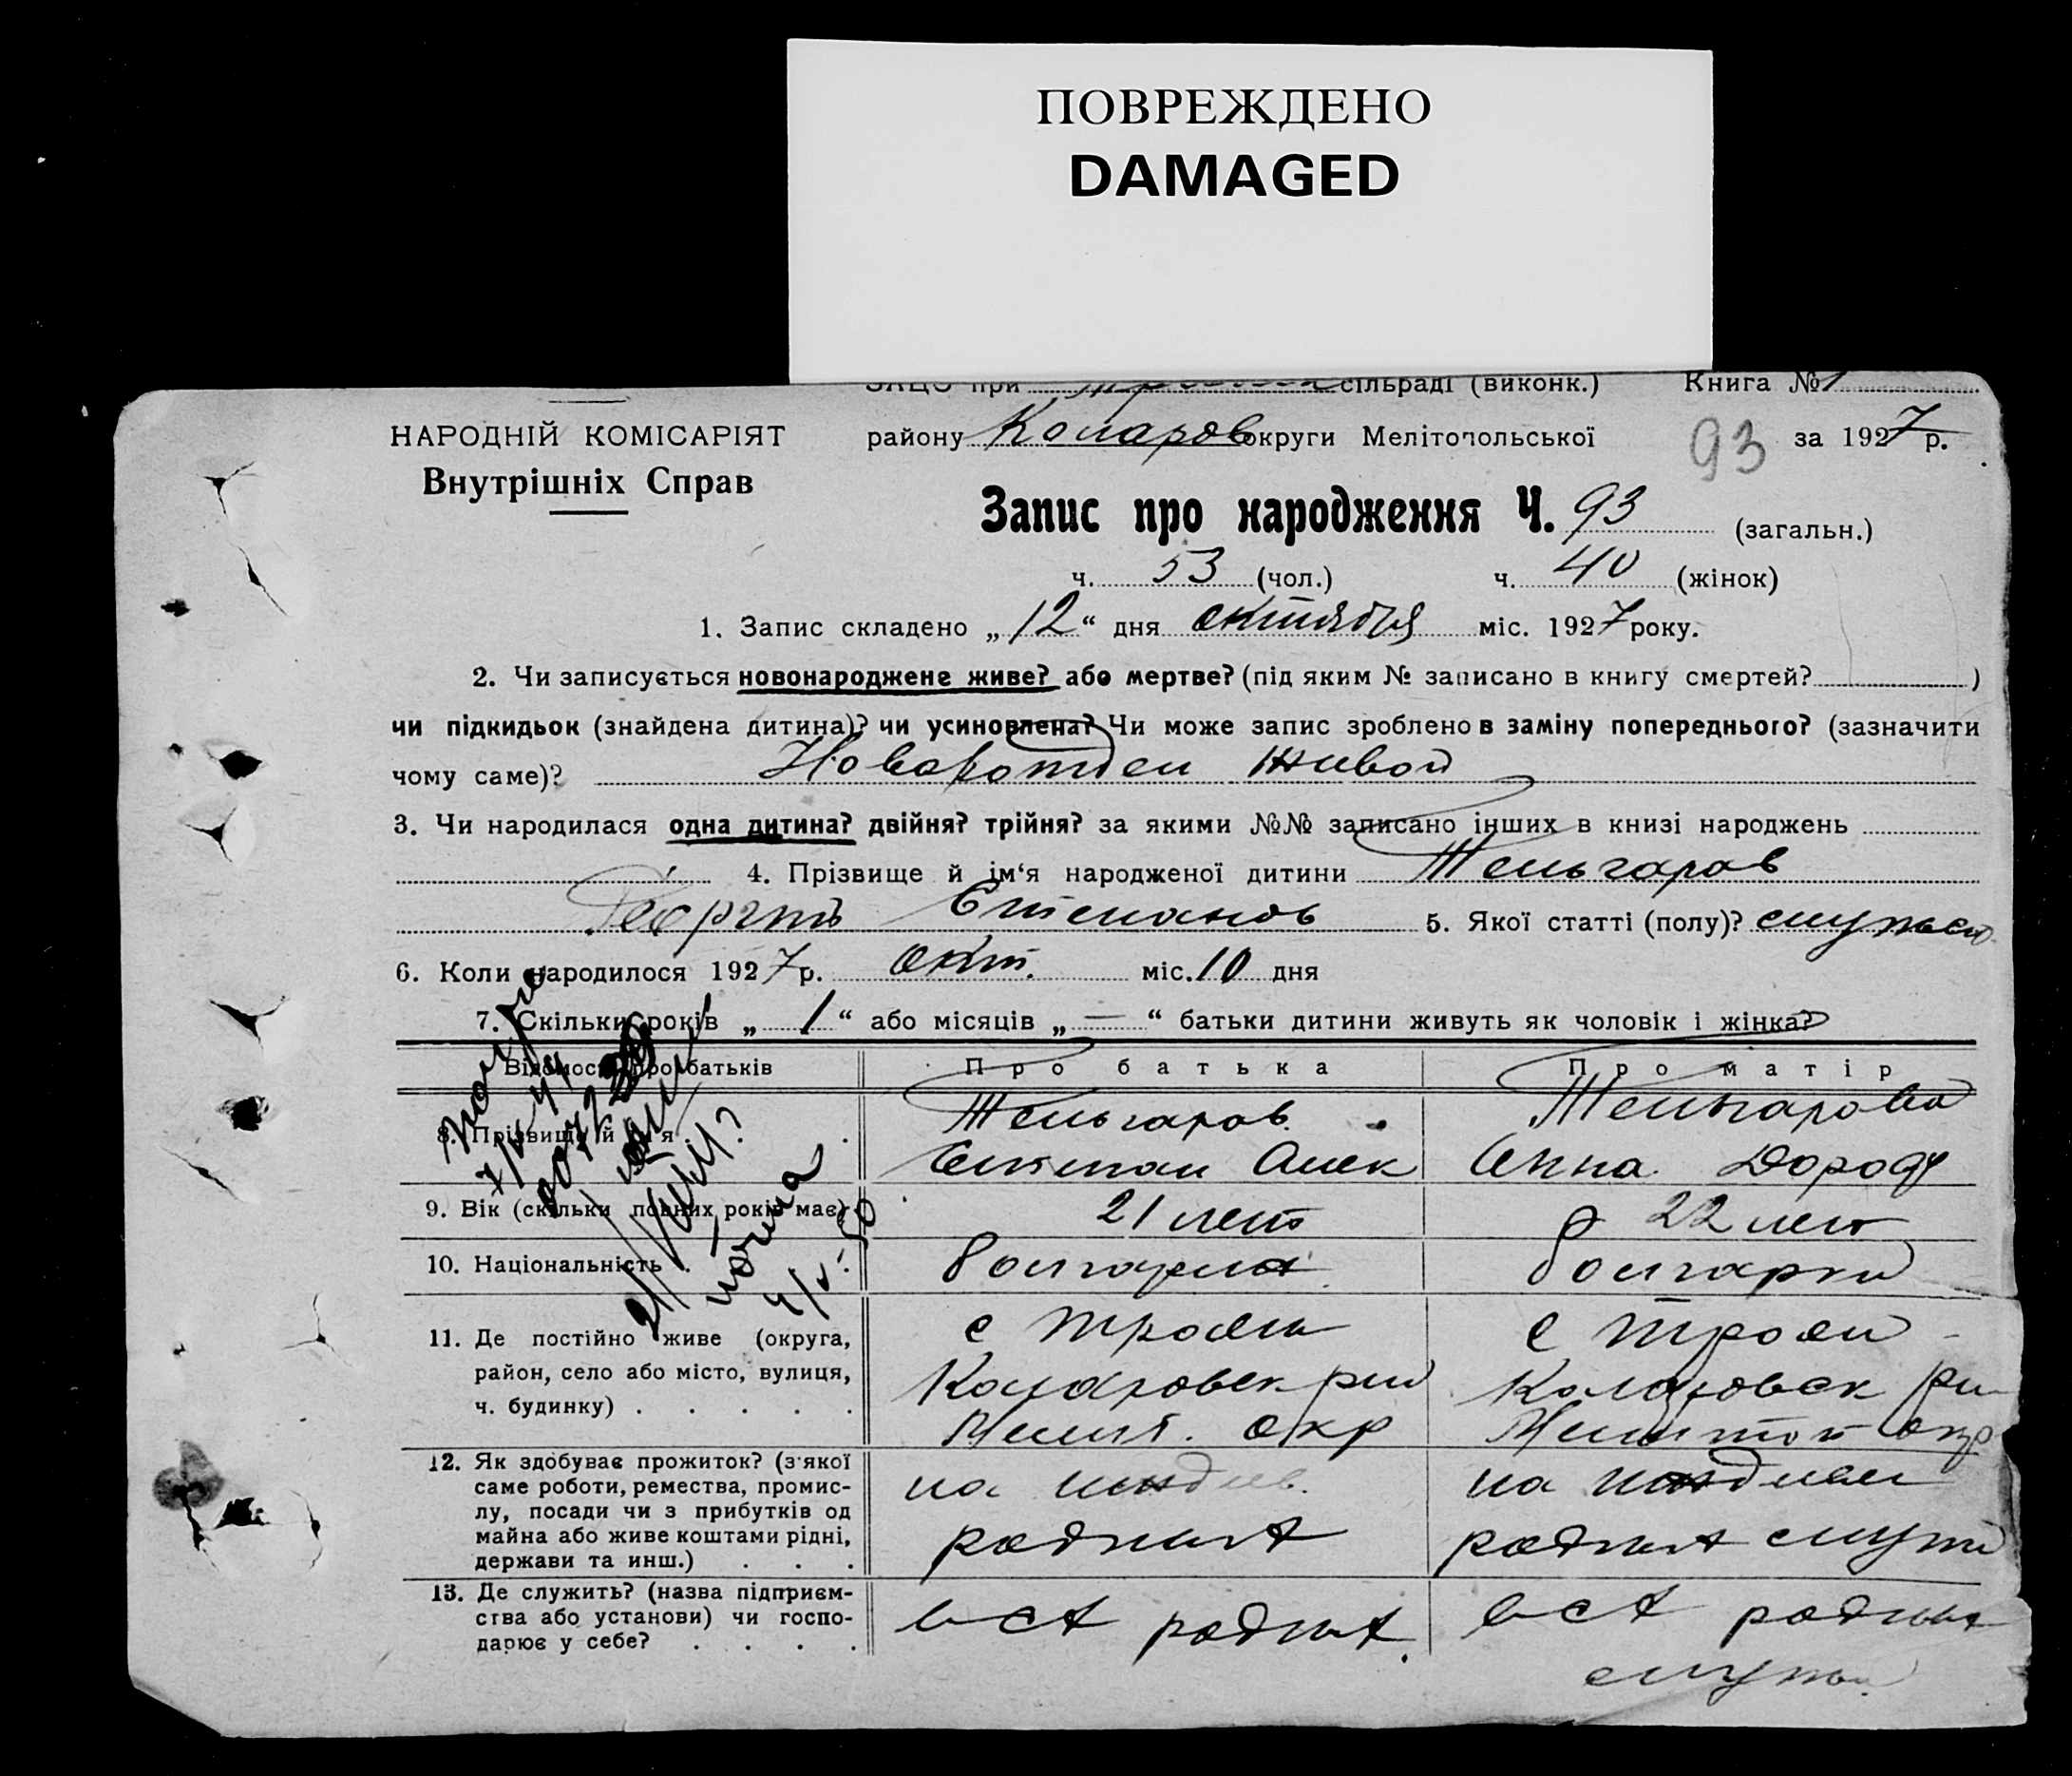 ПОВРЕЖДЕНО
DAMAGED
ЗАЦС при сільраді (виконк.) Книга № 1
НАРОДНІЙ КОМІСАРІЯТ
Внутрішніх Справ
району Коларов округи Мелітопольської 93 за 1927 р.
Запис про народження Ч. 93 (загальн.)
ч. 53 (чол.) ч. 40 (жінок)
1. Запис складено „12“ дня октября міс. 1927 року.
2. Чи записується новонароджене живе? або мертве? (під яким № записано в книгу смертей? )
чи підкидьок (знайдена дитина)? чи усиновлена? Чи може запис зроблено в заміну попереднього? (зазначити
чому саме)? Новорожден живой
3. Чи народилася одна дитина? двійня? трійня? за якими №№ записано інших в книзі народжень
4. Прізвище й ім‘я народженої дитини Тельгаров
Георгий Степанов 5. Якої статті (полу)?
6. Коли народилося 1927 р. окт. міс. 10 дня
7. Скільки років „ 1 “ або місяців „ — “ батьки дитини живуть як чоловік і жінка?
Відомості про батьків Про батька Про матір
8. Прізвище й ім'я Тельгаров Тельгарова
Степан Алек Анна Дороф
9. Вік (скільки повних років має) 21 лет 22 лет
10. Національність болгарин болгарки
11. Де постійно живе (округа, с Трояны с Трояни
район, село або місто, вулиця, Коларовск рни Коларовск
ч. будинку) . . . . . Мелит. окр Мелитоп окр
12. Як здобуває прожиток? (з якої
саме роботи, ремества, промис- на иждив. на иждивен
лу, посади чи з прибутків од
майна або живе коштами рідні, родных родных мужа
держави та инш.) . . .
13. Де служить? (назва підприєм-
ства або установи) чи госпо- в сх родных в сх родных
дарює у себе? . . . . мужа